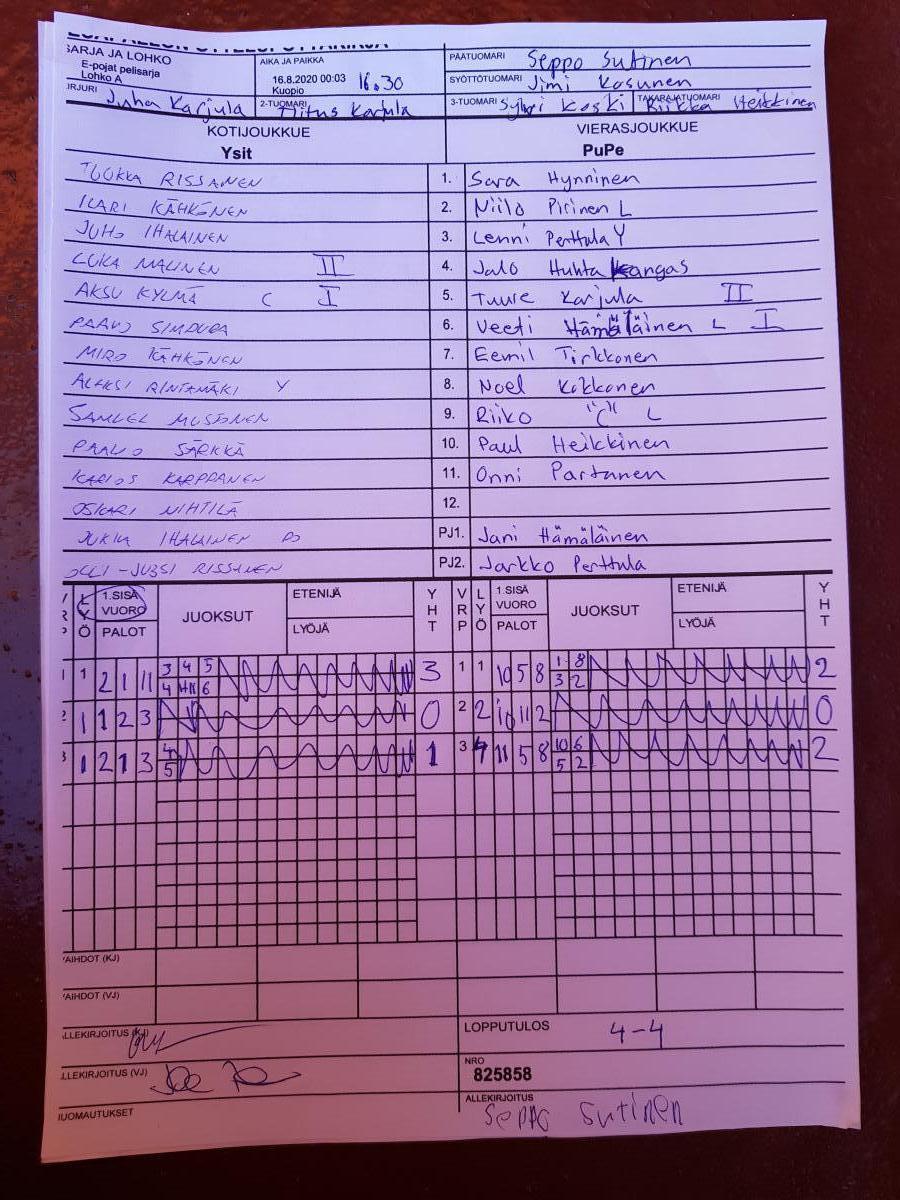 SARJA JA LOHKO
E-pojat pelisarja
Lohko A
AIKA JA PAIKKA
16.8.2020 00:03 16.30
Kuopio
PÄÄTUOMARI Seppo Sutinen
SYÖTTÖTUOMARI Jimi Kosunen
IRJURI Juha Karjula
2-TUOMARI Titus Karjula
3-TUOMARI Sylvi Koski
TAKARAJATUOMARI Riikka Heikkinen
KOTIJOUKKUE VIERASJOUKKUE
Ysit PuPe
TUUKKA RISSANEN 1. Sara Hynninen
ILARI KÄHKÖNEN 2. Niilo Pirinen L
JUHO IHALAINEN 3. Lenni Perttula Y
LUKA MALINEN II 4. Jalo Huhtakangas
AKSU KYLMÄ C I 5. Tuure Karjula II
PAAVO SIMPURA 6. Veeti Hämäläinen L I
MIRO KÄHKÖNEN 7. Eemil Tirkkonen
ALEKSI RINTAMÄKI Y 8. Noel Kokkonen
SAMUEL MUSTONEN 9. Riiko "C" L
PAAVO SÄRKKÄ 10. Paul Heikkinen
KARLOS KARPPANEN 11. Onni Partanen
OSKARI NIHTILÄ 12.
JUKKA IHALAINEN PJ1. Jani Hämäläinen
OLLI-JUSSI RISSANEN PJ2. Jarkko Perttula
LYÖ 1.SISÄ VUORO PALOT JUOKSUT ETENIJÄ LYÖJÄ YHT VRP LYÖ 1.SISÄ VUORO PALOT JUOKSUT ETENIJÄ LYÖJÄ YHT
1 2 1 11 3 4 5 3 1 1 10 5 8 1 8 2
4 6 3 2
1 1 2 3 0 2 2 10 11 2 0
1 2 1 3 4 1 3 4 11 5 8 10 6 2
5 5 2
VAIHDOT (KJ)
VAIHDOT (VJ)
ALLEKIRJOITUS (KJ)
LOPPUTULOS 4-4
ALLEKIRJOITUS (VJ)
NRO
825858
HUOMAUTUKSET
ALLEKIRJOITUS
Seppo Sutinen